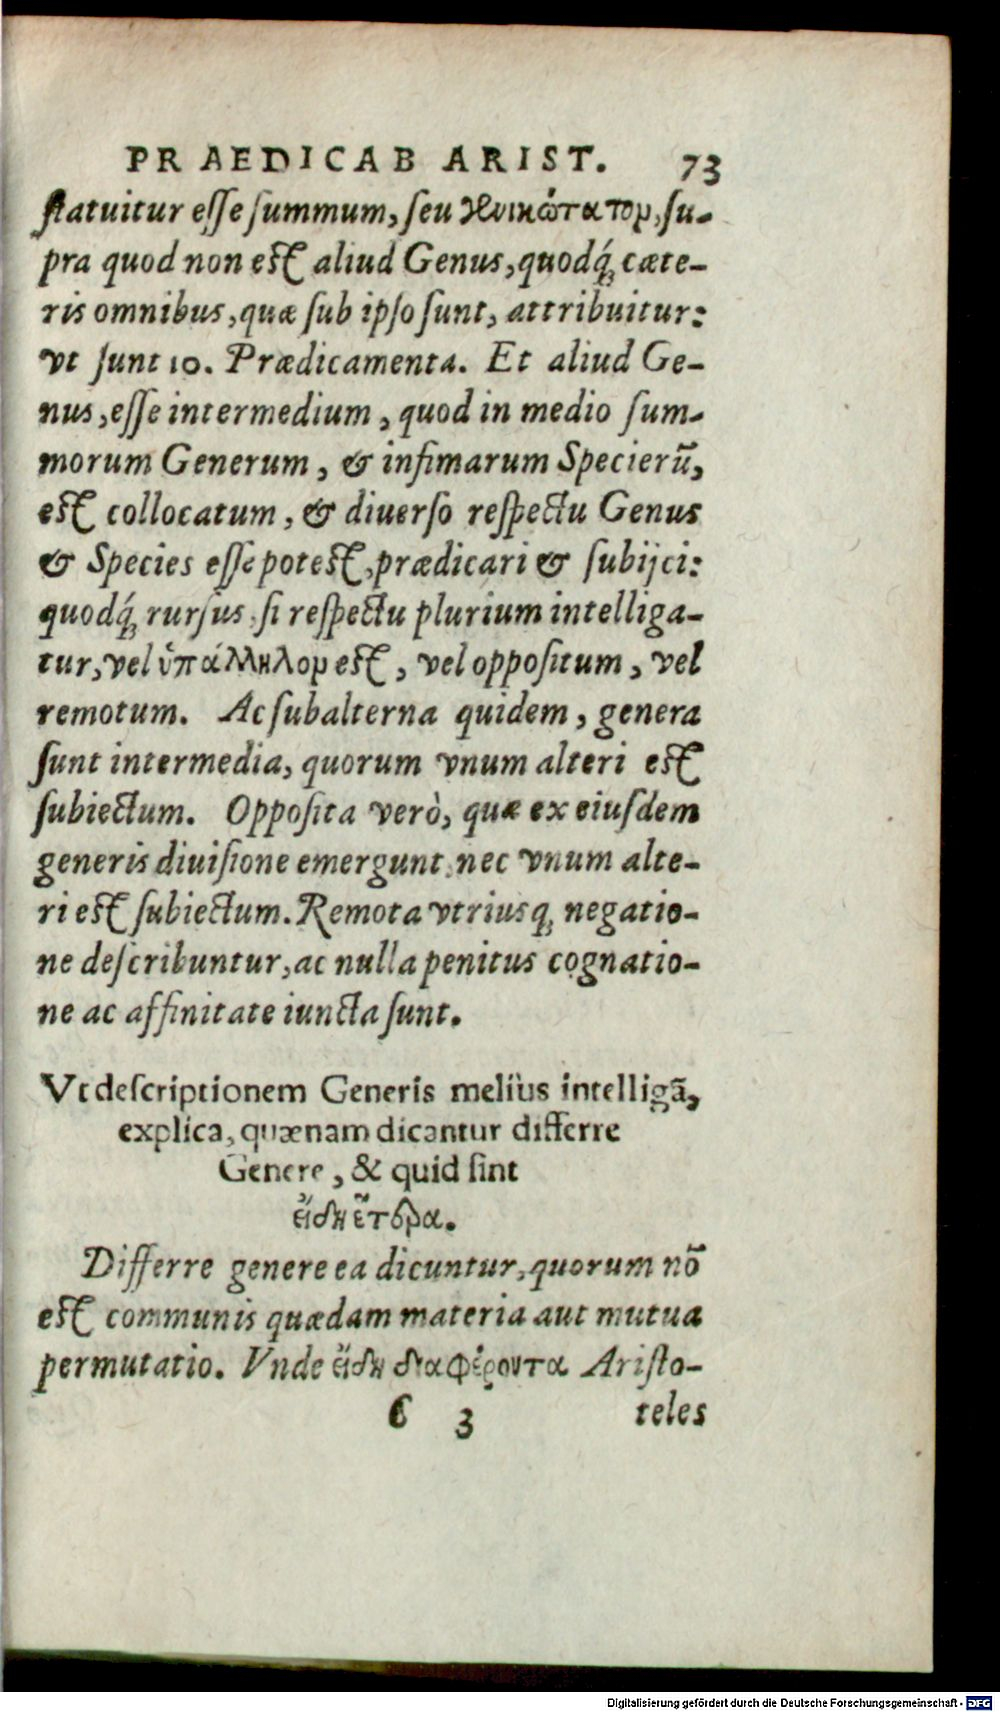 PRAEDICAB ARIST. 73
statuitur esse summum, seu γενικώτατον, su-
pra quod non est aliud Genus, quodq́; cæte-
ris omnibus, quæ sub ipso sunt, attribuitur:
vt sunt 10. Prædicamenta. Et aliud Ge-
nus, esse intermedium, quod in medio sum-
morum Generum, & infimarum Specierū,
est collocatum, & diuerso respectu Genus
& Species esse potest, prædicari & subijci:
quodq́; rursus, si respectu plurium intelliga-
tur, vel ὑπάλληλον est, vel oppositum, vel
remotum. Ac subalterna quidem, genera
sunt intermedia, quorum vnum alteri est
subiectum. Opposita verò, quæ ex eiusdem
generis diuisione emergunt, nec vnum alte-
ri est subiectum. Remota vtriusq; negatio-
ne describuntur, ac nulla penitus cognatio-
ne ac affinitate iuncta sunt.
Vt descriptionem Generis meliùs intelligā,
explica, quænam dicantur differre
Genere, & quid sint
εἴδη ἕτερα.
Differre genere ea dicuntur, quorum nō
est communis quædam materia aut mutua
permutatio. Vnde εἴδη διαφέροντα Aristo-
C 3 teles
Digitalisierung gefördert durch die Deutsche Forschungsgemeinschaft - DFG